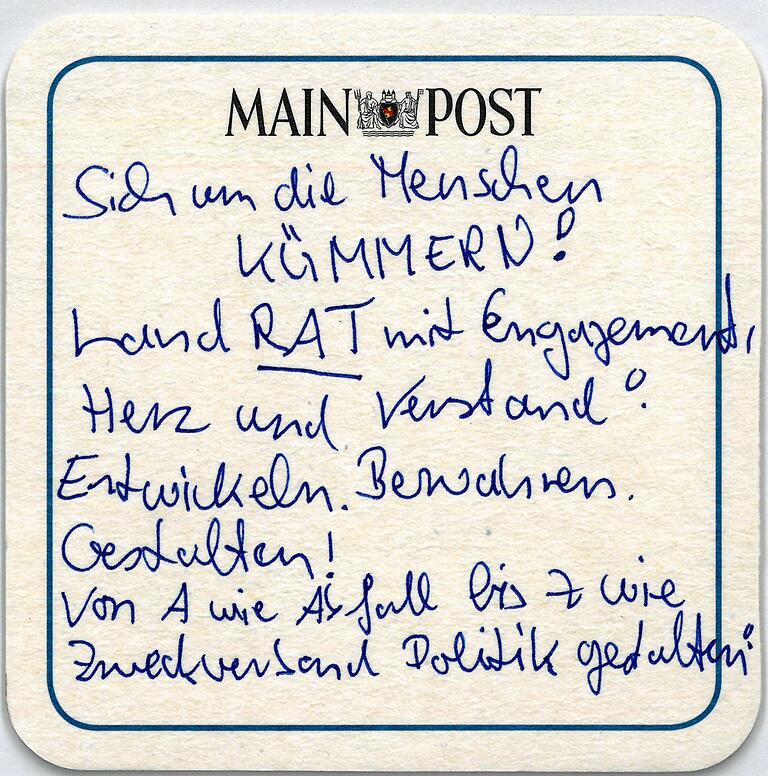 MAIN POST
Sich um die Menschen
KÜMMERN!
Land RAT mit Engagement,
Herz und Verstand!
Entwickeln. Bewahren.
Gestalten!
Von A wie Abfall bis Z wie
Zweckverband Politik gestalten!